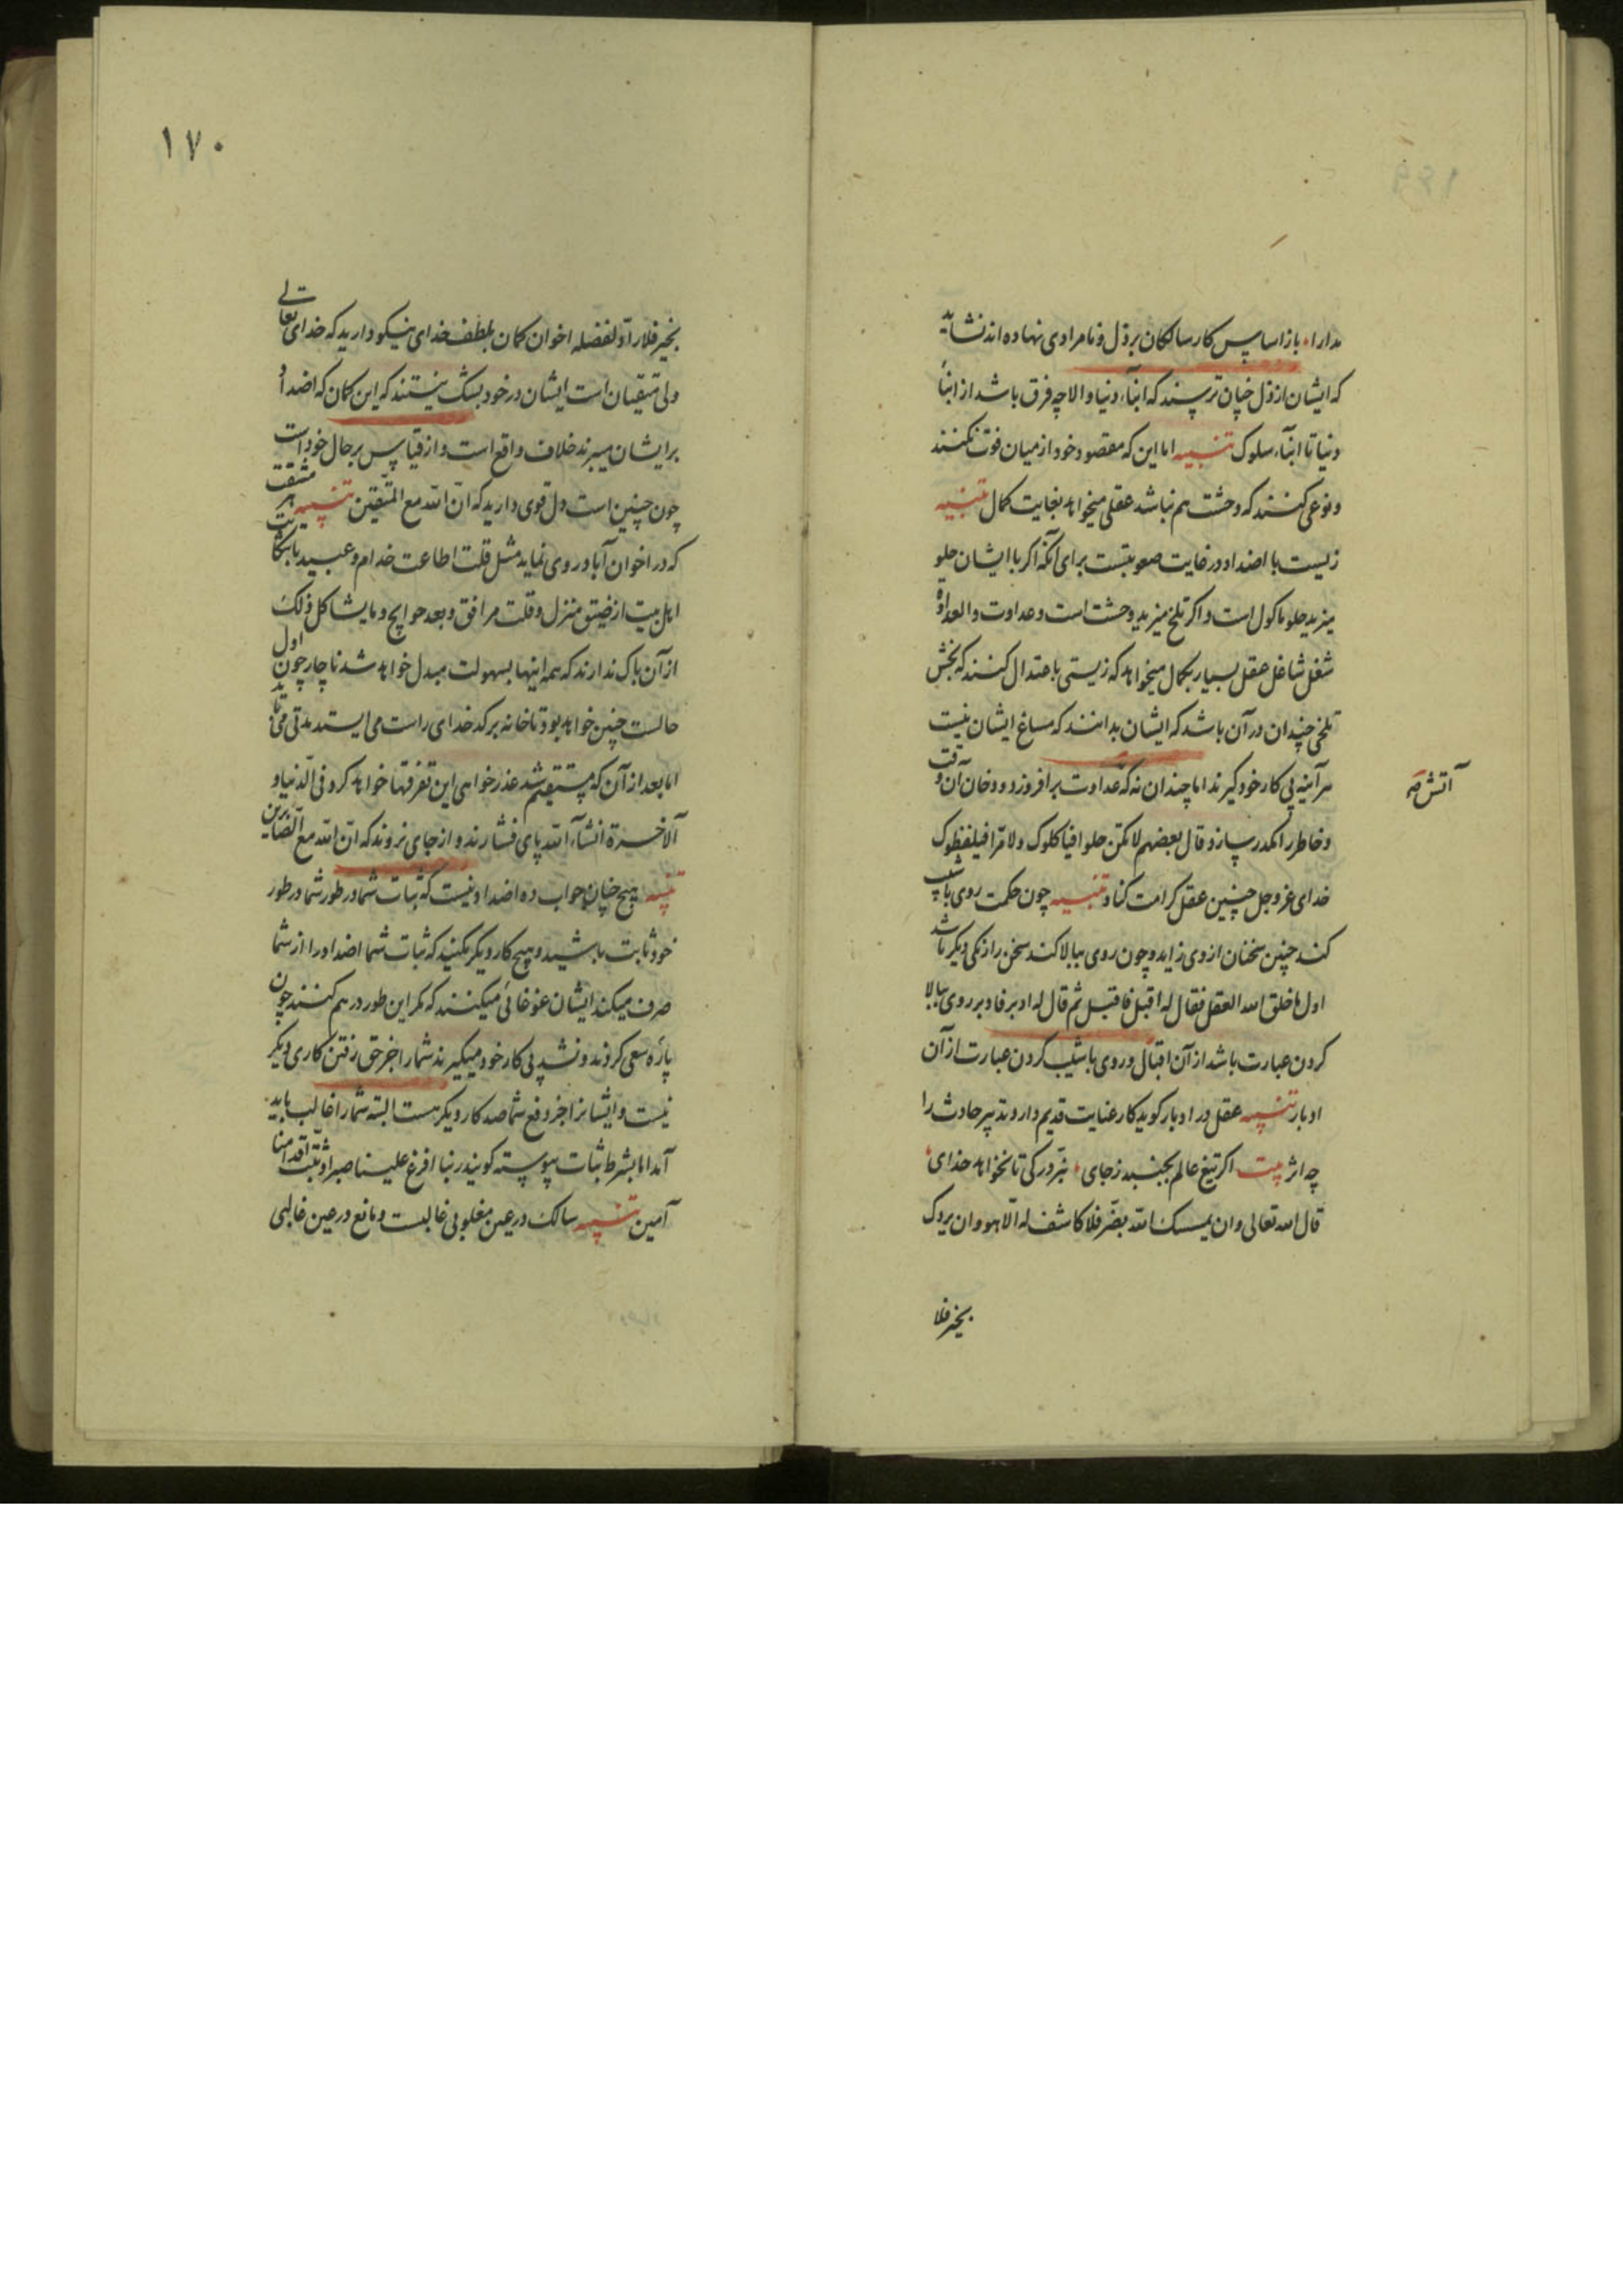 مدارا، باز اساس کار سالکان بر ذل و نامرادی نهاده‌اند نشاید
که ایشان از ذل چنان ترسند که ابنآء دنیا و الا چه فرق باشد از ابنآء
دنیا تا ابنآء سلوک تنبیه اما این که مقصود خود از میان فوت نکنند
و نوعی کنند که وحشت هم نباشد عقلی میخواهد بغایت کمال تنبیه
زیست با اضداد در غایت صعوبتست برای آنکه اگر با ایشان حلو
میزید حلو ماکول است و اگر تلخ میزید وحشت است و عداوت و العداوة
شغل شاغل عقل بسیار بکمال میخواهد که زیستی باعتدال کنند که بخش
تلخی چندان در آن باشد که ایشان بدانند که مساغ ایشان نیست
هر آینه پی کار خود گیرند اما چندان نه که عداوت برافروزد و دخان آن وقت
و خاطر را مکدر سازد و قال بعضهم لا تکن حلوا فیاکلوک و لا مرا فیلفظوک
خدای عز و جل چنین عقل کرامت کناد تنبیه چون حکمت روی باشیب
کند چنین سخنان از وی زاید و چون روی ببالا کند سخن را رنگی دیگر باشد
اول ما خلق الله العقل فقال له اقبل فاقبل ثم قال له ادبر فادبر روی ببالا
کردن عبارت باشد از آن اقبال و روی باشیب کردن عبارت از آن
ادبار تنبیه عقل در ادبار گوید کار عنایت قدیم دارد تدبیر حادث را
چه اثر بیت اگر تیغ عالم بجنبد ز جای، نبرد رگی تا نخواهد خدای،
قال الله تعالی و ان یمسسک الله بضر فلا کاشف له الا هو و ان یردک
بخیر فلا
آتش صه
١٧٠
بخیر فلا راد لفضله اخوان گمان بلطف خدای نیکو دارید که خدای تعالی
ولی متقیان است ایشان در خود بشک نیستند که این گمان که اضداد
بر ایشان میبرند خلاف واقع است و از قیاس بر حال خود است
چون چنین است دل قوی دارید که ان الله مع المتقین تنبیه هر مشقت
که در اخوان آباد روی نماید مثل قلت اطاعت خدام و عبید یا شکایت
اهل بیت از ضیق منزل و قلت مرافق و بعد حوایج و ما یشاکل ذلک
از آن باک ندارند که همه اینها بسهولت مبدل خواهد شد ناچار چون اول
حالست چنین خواهد بود تا خانه بر کدخدای راست می‌ایستد مدتی می‌باید
اما بعد از آن که مستقیم شد عذرخواهی این تفرقها خواهد کرد فی الدنیا و
الآخرة انشآء الله پای فشارند و از جای نروند که ان الله مع الصابرین
تنبیه هیچ چنان جواب ده اضداد نیست که ثبات شما در طور شما در طور
خود ثابت باشید و هیچ کار دیگر مکنید که ثبات شما اضداد را از شما
صرف میکند ایشان غوغائی میکنند که مگر این طور در هم کنند چون
پاره سعی کردند و نشد پی کار خود میگیرند شما را جز حق رفتن کاری دیگر
نیست و ایشانرا جز دفع شما صد کار دیگر هست البته شما را غالب باید
آمد اما بشرط ثبات پیوسته گویند ربنا افرغ علینا صبرا و ثبت اقدامنا
آمین تنبیه سالک در عین مغلوبی غالبست و مانع در عین غالبی